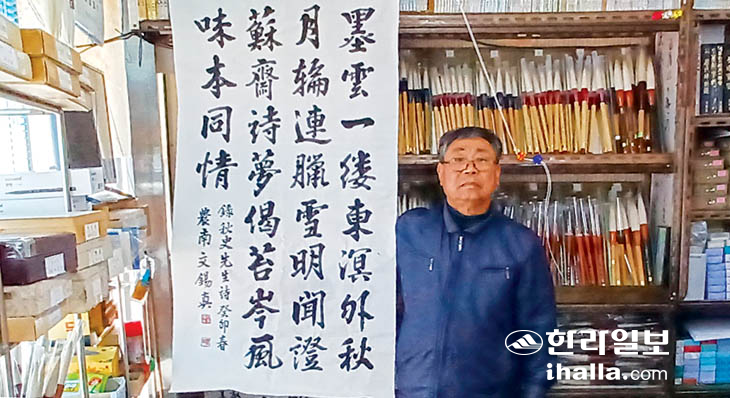 墨雲一縷東溟外秋
月輪連臘雪明聞證
蘇齋詩夢偈苔岑風
味本同情
錄秋史先生詩癸卯春
農南文錫真
한라일보
ihalla.com